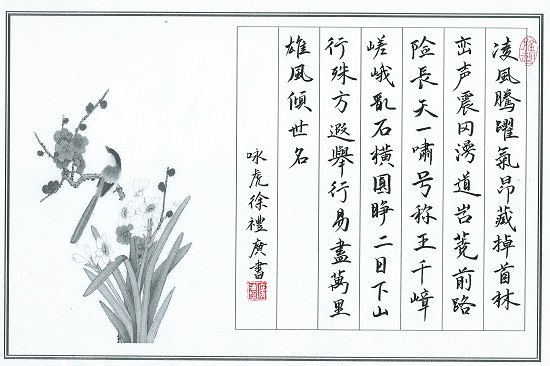 凌風騰躍氣昂藏掉首林
峦声震冈湧道前路
险長天一嘯号称王千嶂
嵯峨乱石横圓睁二目下山
行殊方遐舉行易盡萬里
雄風傾世名
咏虎徐禮广書